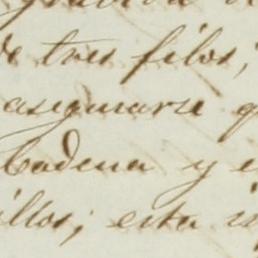 de tres filos,
asegurarse
Cadena y
illos; esta